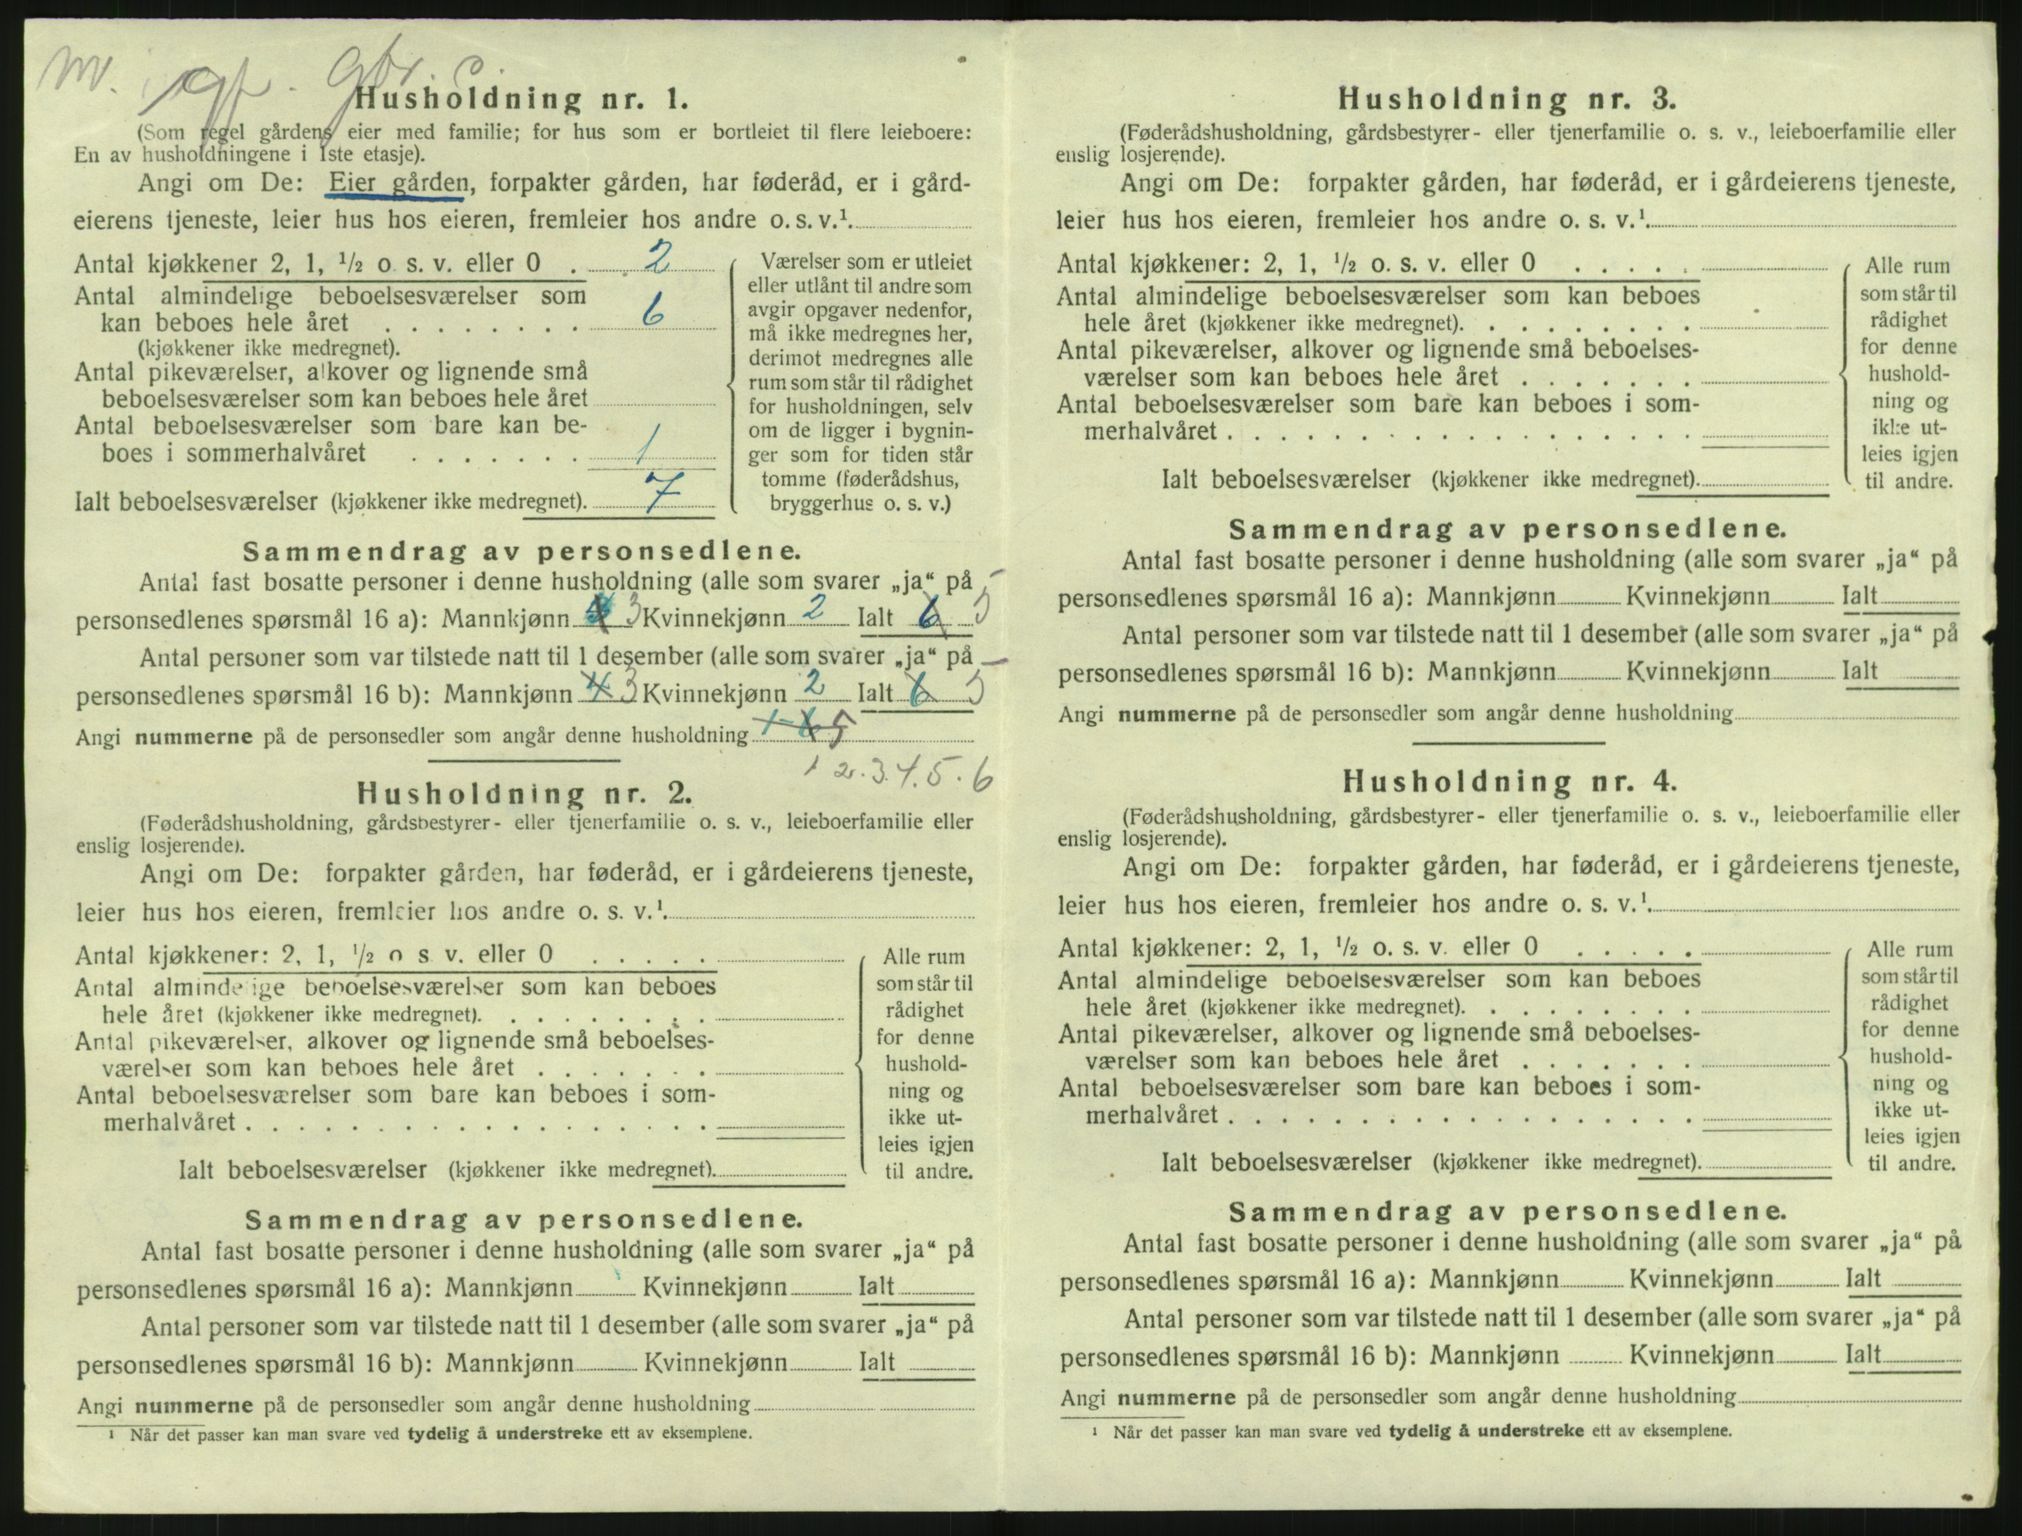 m. gf. gbr. c.
Husholdning nr. 1.
(Som regel gårdens eier med familie; for hus som er bortleiet til flere leieboere:
En av husholdningene i 1ste etasje).
Angi om De: Eier gården, forpakter gården, har føderåd, er i gård-
eierens tjeneste, leier hus hos eieren, fremleier hos andre o. s. v.¹
Antal kjøkkener 2, 1, ½ o. s. v. eller 0 . 2
Antal almindelige beboelsesværelser som
kan beboes hele året . . . . . . . . 6
(kjøkkener ikke medregnet).
Antal pikeværelser, alkover og lignende små
beboelsesværelser som kan beboes hele året
Antal beboelsesværelser som bare kan be-
boes i sommerhalvåret . . . . . . . 1
Ialt beboelsesværelser (kjøkkener ikke medregnet). 7
Værelser som er utleiet
eller utlånt til andre som
avgir opgaver nedenfor,
må ikke medregnes her,
derimot medregnes alle
rum som står til rådighet
for husholdningen, selv
om de ligger i bygnin-
ger som for tiden står
tomme (føderådshus,
bryggerhus o. s. v.)
Sammendrag av personsedlene.
Antal fast bosatte personer i denne husholdning (alle som svarer „ja“ på
personsedlenes spørsmål 16 a): Mannkjønn 4 3 Kvinnekjønn 2 Ialt 6 5
Antal personer som var tilstede natt til 1 desember (alle som svarer „ja“ på
personsedlenes spørsmål 16 b): Mannkjønn 4 3 Kvinnekjønn 2 Ialt 6 5
Angi nummerne på de personsedler som angår denne husholdning 1-6 5
1 2. 3. 4. 5. 6
Husholdning nr. 2.
(Føderådshusholdning, gårdsbestyrer- eller tjenerfamilie o. s. v., leieboerfamilie eller
enslig losjerende).
Angi om De: forpakter gården, har føderåd, er i gårdeierens tjeneste,
leier hus hos eieren, fremleier hos andre o. s. v.¹
Antal kjøkkener: 2, 1, ½ o s v. eller 0 . . . . .
Antal almindelige beboelsesværelser som kan beboes
hele året (kjøkkener ikke medregnet). . . . . . . . .
Antal pikeværelser, alkover og lignende små beboelses-
værelser som kan beboes hele året . . . . . . .
Antal beboelsesværelser som bare kan beboes i som-
merhalvåret . . . . . . . . . . . . . . . . . .
Ialt beboelsesværelser (kjøkkener ikke medregnet).
Alle rum
som står til
rådighet
for denne
hushold-
ning og
ikke ut-
leies igjen
til andre.
Sammendrag av personsedlene.
Antal fast bosatte personer i denne husholdning (alle som svarer „ja“ på
personsedlenes spørsmål 16 a): Mannkjønn Kvinnekjønn Ialt
Antal personer som var tilstede natt til 1 desember (alle som svarer „ja“ på
personsedlenes spørsmål 16 b): Mannkjønn Kvinnekjønn Ialt
Angi nummerne på de personsedler som angår denne husholdning
¹ Når det passer kan man svare ved tydelig å understreke ett av eksemplene.
Husholdning nr. 3.
(Føderådshusholdning, gårdsbestyrer- eller tjenerfamilie o. s. v., leieboerfamilie eller
enslig losjerende).
Angi om De: forpakter gården, har føderåd, er i gårdeierens tjeneste,
leier hus hos eieren, fremleier hos andre o. s. v.¹
Antal kjøkkener: 2, 1, ½ o. s. v. eller 0 . . . . .
Antal almindelige beboelsesværelser som kan beboes
hele året (kjøkkener ikke medregnet). . . . . . . . .
Antal pikeværelser, alkover og lignende små beboelses-
værelser som kan beboes hele året . . . . . . .
Antal beboelsesværelser som bare kan beboes i som-
merhalvåret . . . . . . . . . . . . . . . . . .
Ialt beboelsesværelser (kjøkkener ikke medregnet).
Alle rum
som står til
rådighet
for denne
hushold-
ning og
ikke ut-
leies igjen
til andre.
Sammendrag av personsedlene.
Antal fast bosatte personer i denne husholdning (alle som svarer „ja“ på
personsedlenes spørsmål 16 a): Mannkjønn Kvinnekjønn Ialt
Antal personer som var tilstede natt til 1 desember (alle som svarer „ja“ på
personsedlenes spørsmål 16 b): Mannkjønn Kvinnekjønn Ialt
Angi nummerne på de personsedler som angår denne husholdning
Husholdning nr. 4.
(Føderådshusholdning, gårdsbestyrer- eller tjenerfamilie o. s. v., leieboerfamilie eller
enslig losjerende).
Angi om De: forpakter gården, har føderåd, er i gårdeierens tjeneste,
leier hus hos eieren, fremleier hos andre o. s. v.¹
Antal kjøkkener: 2, 1, ½ o. s. v. eller 0 . . . . .
Antal almindelige beboelsesværelser som kan beboes
hele året (kjøkkener ikke medregnet). . . . . . . . .
Antal pikeværelser, alkover og lignende små beboelses-
værelser som kan beboes hele året . . . . . . .
Antal beboelsesværelser som bare kan beboes i som-
merhalvåret . . . . . . . . . . . . . . . . . .
Ialt beboelsesværelser (kjøkkener ikke medregnet).
Alle rum
som står til
rådighet
for denne
hushold-
ning og
ikke ut-
leies igjen
til andre.
Sammendrag av personsedlene.
Antal fast bosatte personer i denne husholdning (alle som svarer „ja“ på
personsedlenes spørsmål 16 a): Mannkjønn Kvinnekjønn Ialt
Antal personer som var tilstede natt til 1 desember (alle som svarer „ja“ på
personsedlenes spørsmål 16 b): Mannkjønn Kvinnekjønn Ialt
Angi nummerne på de personsedler som angår denne husholdning
¹ Når det passer kan man svare ved tydelig å understreke ett av eksemplene.